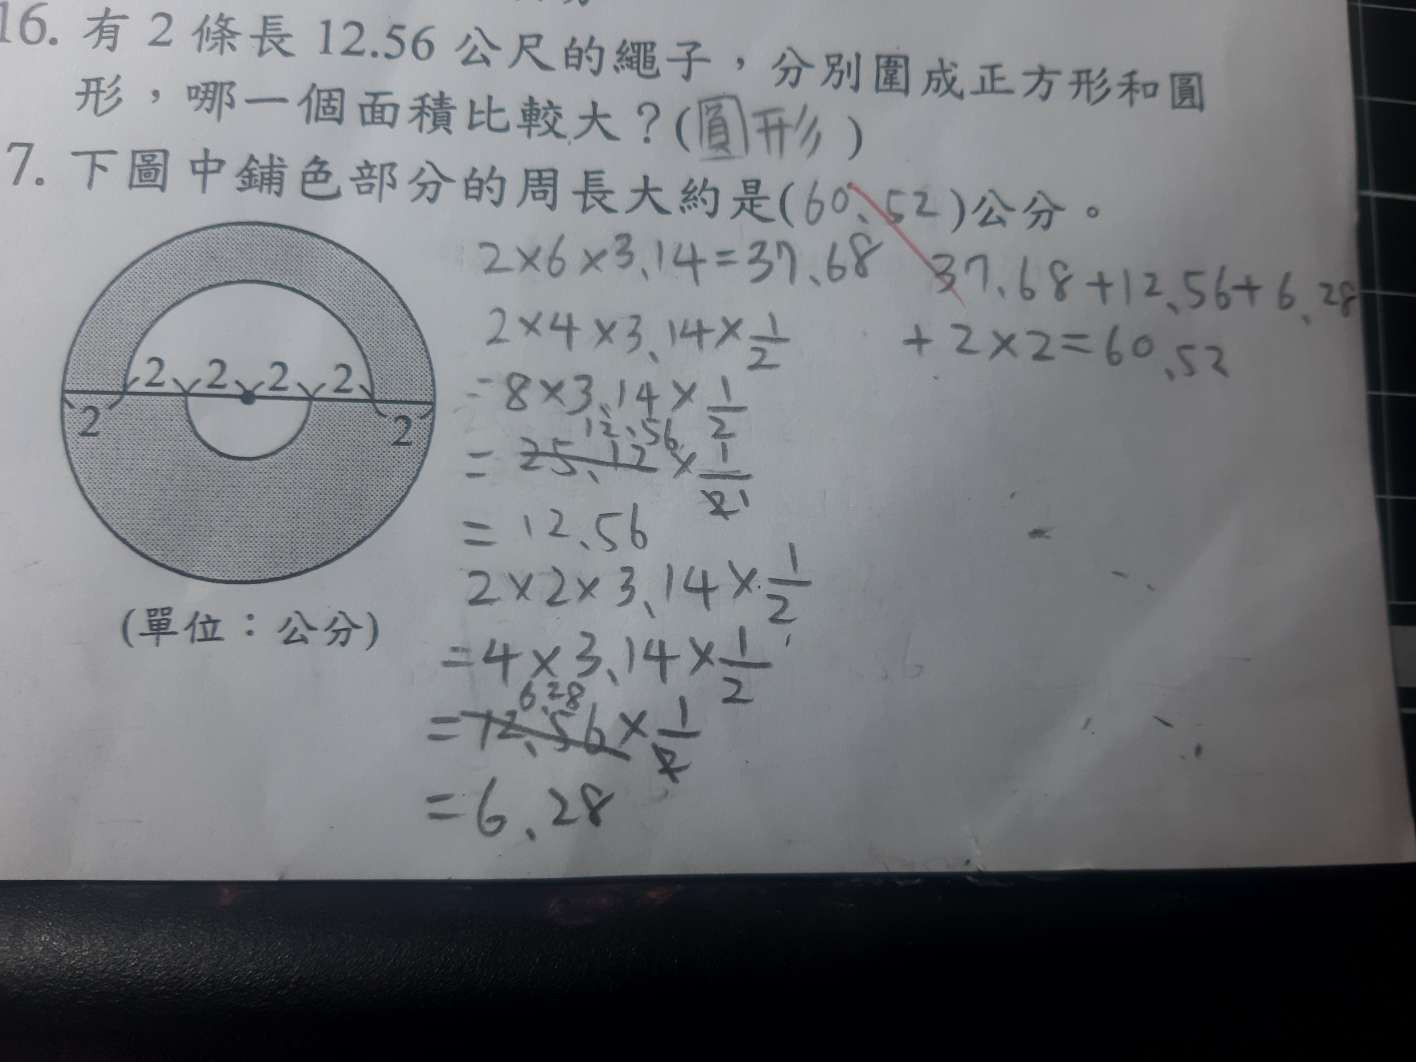 16. 有 2 條長 12.56 公尺的繩子，分別圍成正方形和圓
形，哪一個面積比較大？(圓形)
7. 下圖中鋪色部分的周長大約是(60.52)公分。
2×6×3.14=37.68
37.68+12.56+6.28
+2×2=60.52
2×4×3.14×1/2
=8×3.14×1/2
12.56
= 25.12×1/2 1
= 12.56
2×2×3.14×1/2
=4×3.14×1/2
6.28
=12.56×1/2
=6.28
2 2 2 2
2 2
(單位：公分)